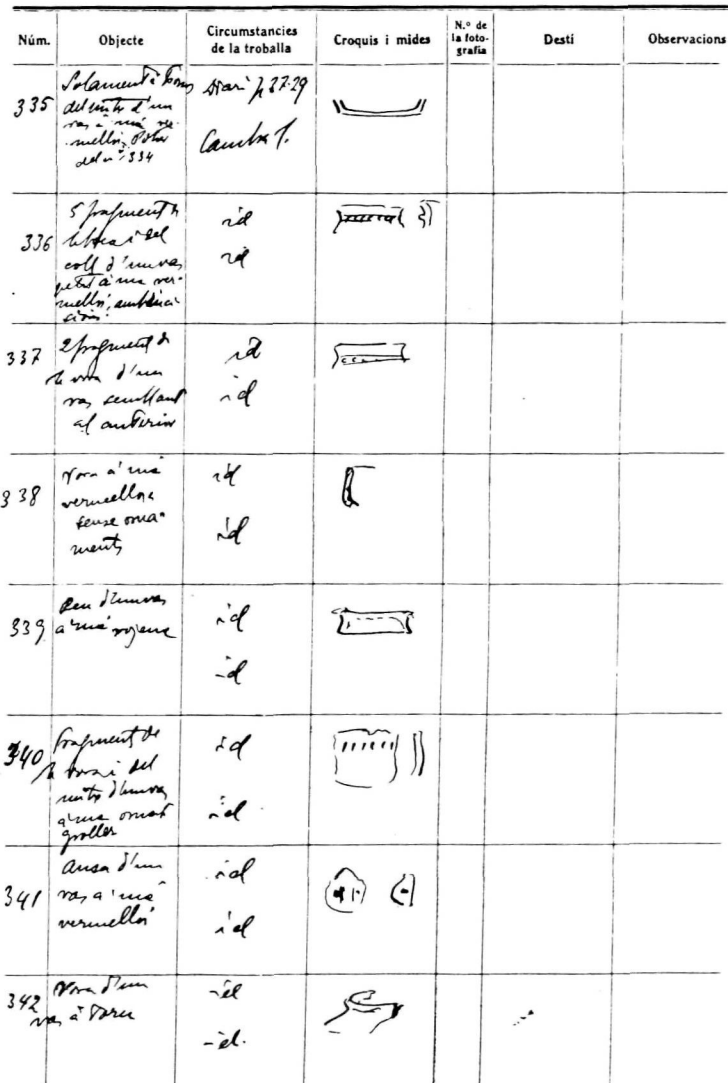 Núm. Objecte Circumstancies de la troballa Croquis i mides N.º de la foto-grafia Destí Observacions
335
del d'un
vas a mà ver-
mellós
del nº 334
Diari p. 27-29
Cambra 1.
336
5 fragments de
la boca i del
coll d'un vas
petit a mà ver-
mellós, amb
id
id
337
2 fragments de
la vora d'un
vas semblant
al anterior
id
id
338
Vora a mà
vermellosa
sense orna-
ments
id
id
339
Peu d'un vas
a mà rojenc
id
id
340
Fragment de
la vora i del
d'un vas
a mà ornat
groller
id
id
341
Ansa d'un
vas a mà
vermellós
id
id
342
Vora d'un
vas a torn
id
id